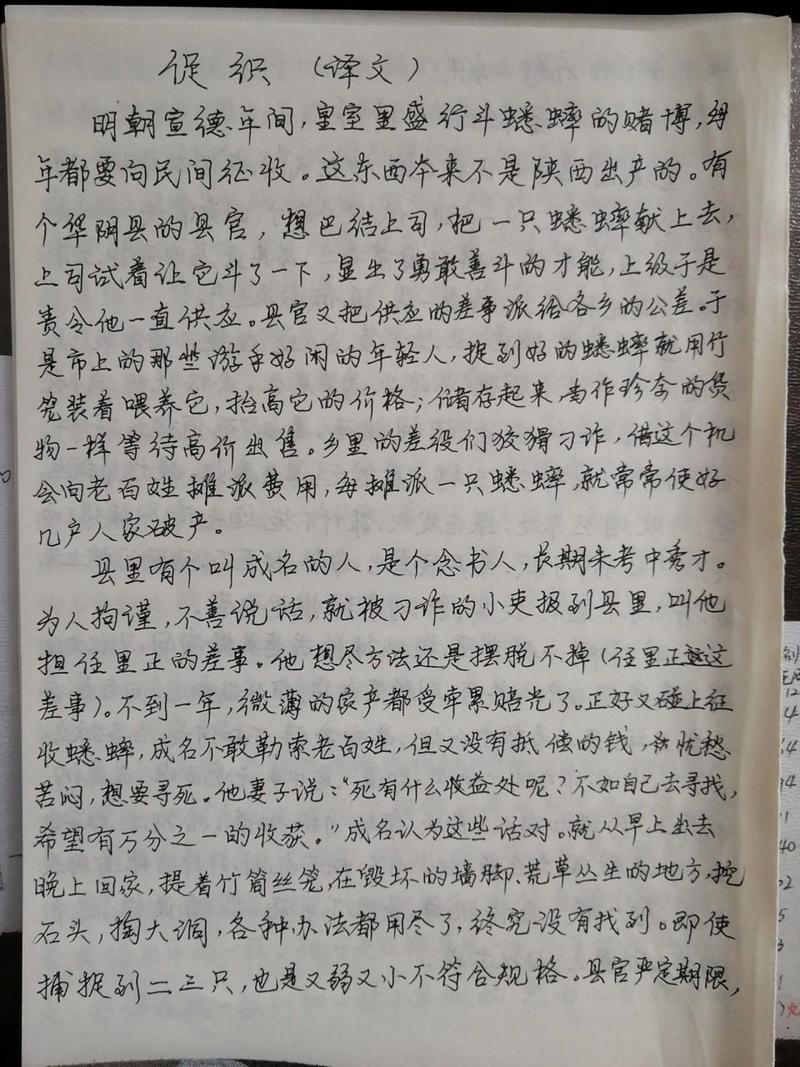 促织（译文）
明朝宣德年间，皇室里盛行斗蟋蟀的赌博，每
年都要向民间征收。这东西本来不是陕西出产的。有
个华阴县的县官，想巴结上司，把一只蟋蟀献上去，
上司试着让它斗了一下，显出了勇敢善斗的才能，上级于是
责令他一直供应。县官又把供应的差事派给各乡的公差。于
是市上的那些游手好闲的年轻人，捉到好的蟋蟀就用竹
笼装着喂养它，抬高它的价格；储存起来，当作珍奇的货
物一样等待高价出售。乡里的差役们狡猾刁诈，借这个机
会向老百姓摊派费用，每摊派一只蟋蟀，就常常使好
几户人家破产。
县里有个叫成名的人，是个念书人，长期未考中秀才。
为人拘谨，不善说话，就被刁诈的小吏报到县里，叫他
担任里正的差事。他想尽方法还是摆脱不掉（任里正这
差事）。不到一年，微薄的家产都受牵累赔光了。正好又碰上征
收蟋蟀，成名不敢勒索老百姓，但又没有抵偿的钱，忧愁
苦闷，想要寻死。他妻子说：“死有什么收益处呢？不如自己去寻找，
希望有万分之一的收获。”成名认为这些话对。就从早上出去
晚上回家，提着竹筒丝笼，在毁坏的墙脚、荒草丛生的地方，挖
石头，掏大洞，各种办法都用尽了，终究没有找到。即使
捕捉到二三只，也是又弱又小不符合规格。县官严定期限，